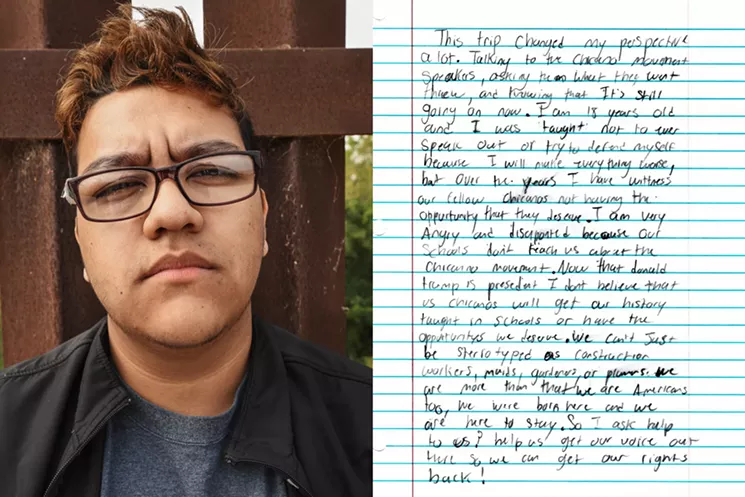 This trip changed my perspective
a lot. Talking to the Chicano movement
speakers, asking them what they went
threw, and knowing that It's still
going on now. I am 18 years old
and I was taught not to ever
speak out or try to defend myself
because I will make everything worse,
but over the years I have witness
our fellow chicanos not having the
opportunity that they deserve. I am very
Angry and because our
schools don't teach us about the
chicano movement. Now that donald
trump is president I dont believe that
us chicanos will get our history
taught in schools or have the
opportunitys we deserve. We can't Just
be stereotyped as construction
workers, maids, gardeners, or we
are more than that we are Americans
too, we were born here and we
are here to stay. So I ask help
to us? help us get our voice out
here so we can get our rights
back!